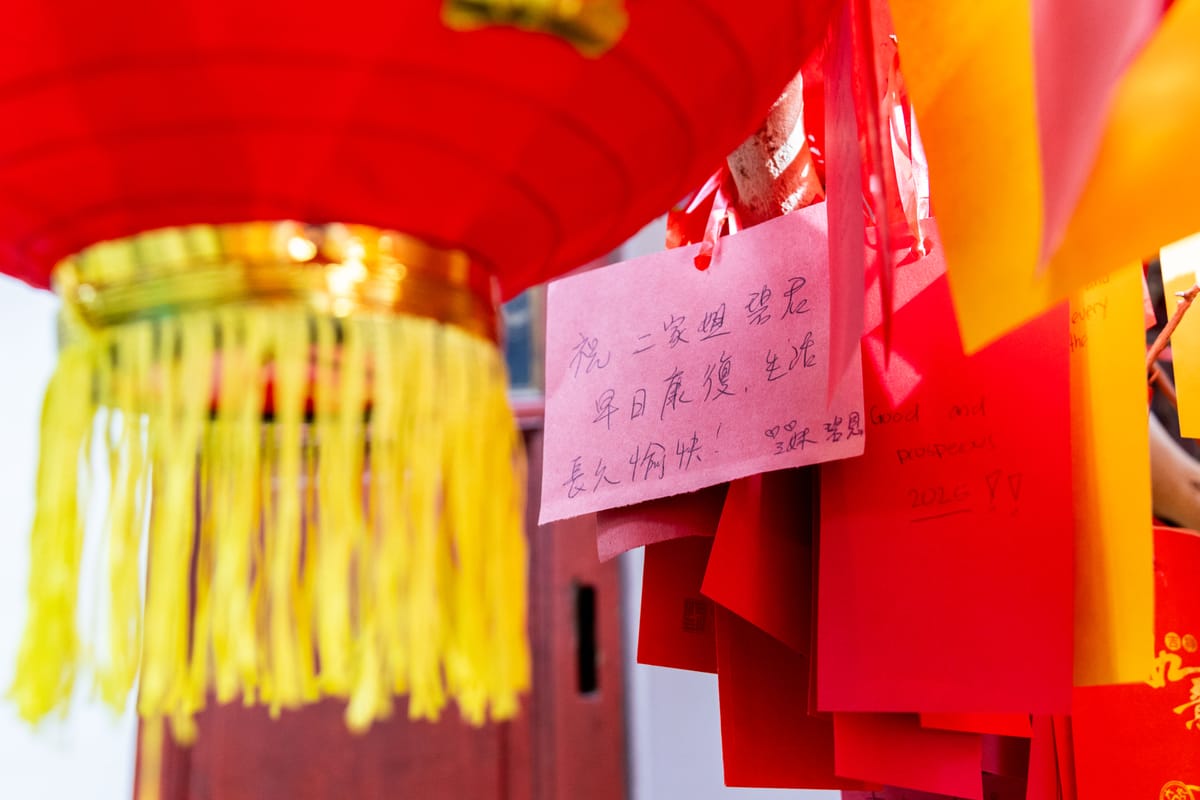 祝 二家姐 碧君
早日康復，生活
長久愉快！
妹 碧恩
Good and
prosperous
2026 !!
and
every
the
如意